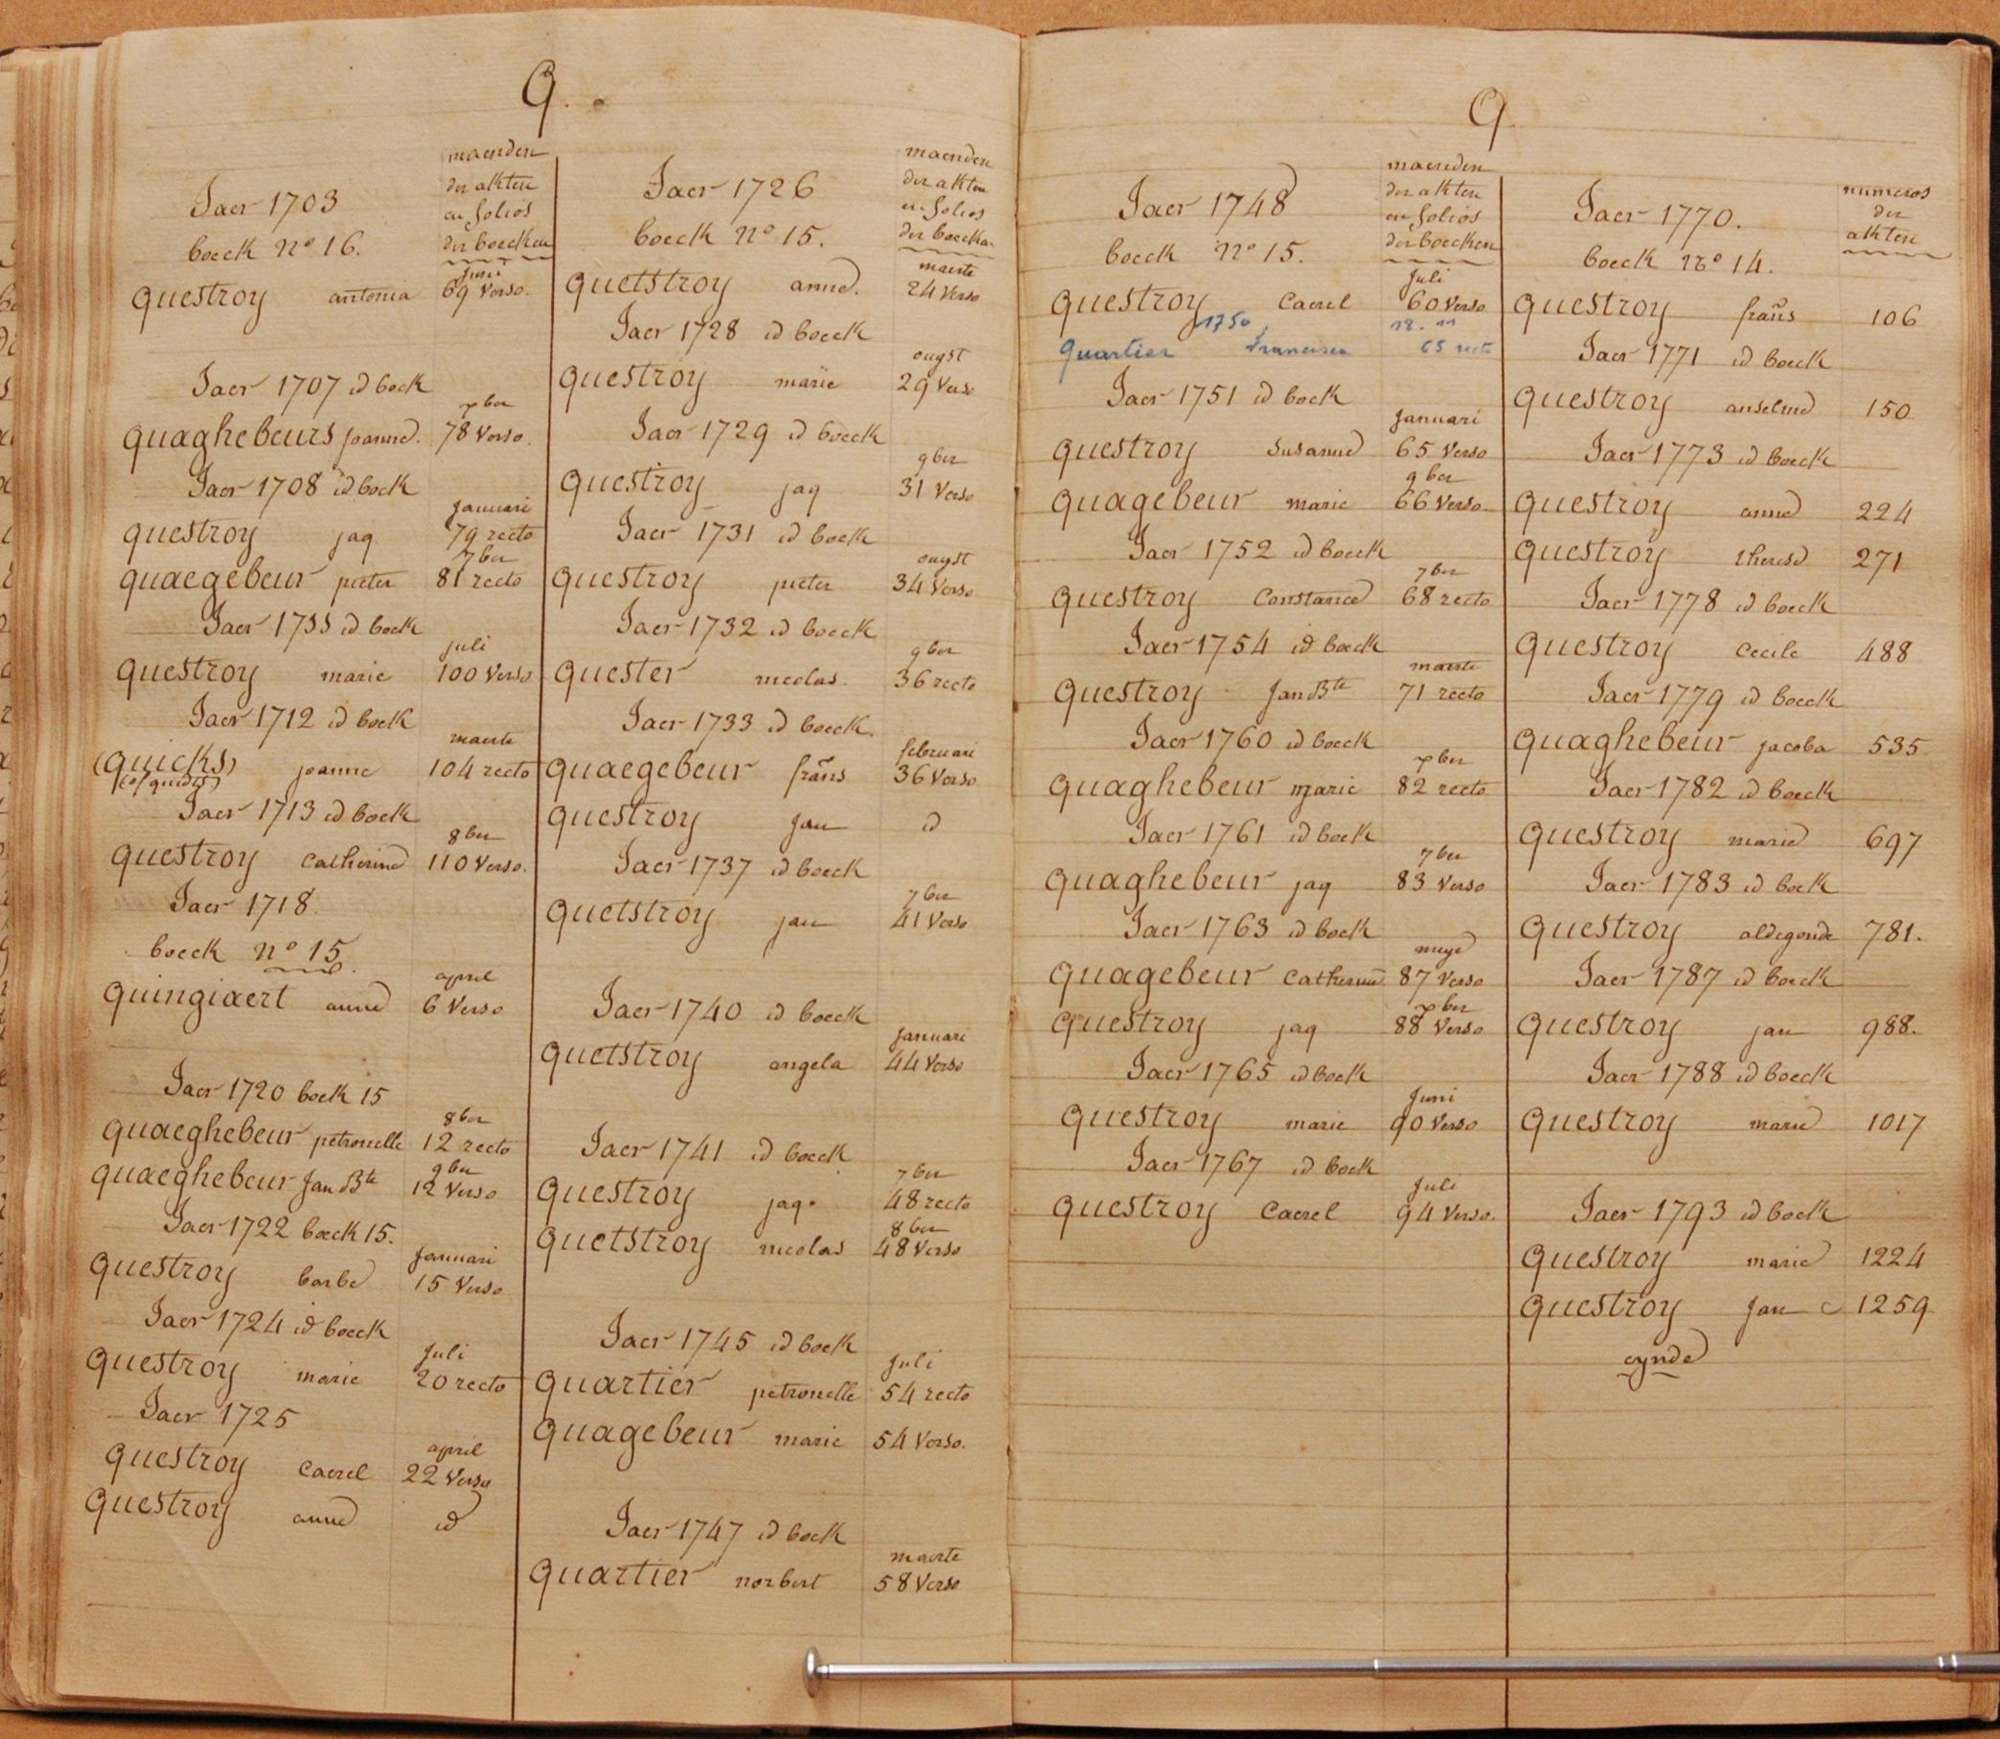 Q.
maenden
der akten
en folios
der boecken
Jaer 1703
boeck Nº 16.
juni
questroy antonia 69 verso.
Jaer 1707 id boek
xber
quaghebeurs joanne. 78 verso.
Jaer 1708 id boek
januari
questroy jaq 79 recto
7ber
quaegebeur pieter 81 recto
Jaer 1711 id boek
juli
questroy marie 100 verso
Jaer 1712 id boek
maerte
(quicks) joanne 104 recto
Jaer 1713 id boek
8ber
questroy catherine 110 verso.
Jaer 1718
boeck Nº 15.
april
quingiaert anne 6 verso
Jaer 1720 boek 15
8ber
quaeghebeur petronelle 12 recto
9ber
quaeghebeur Jan Bte 12 verso
Jaer 1722 boeck 15.
januari
questroy barbe 15 verso
Jaer 1724 id boeck
juli
questroy marie 20 recto
Jaer 1725
april
questroy Caerel 22 verso
questroy anne id
maenden
der akten
en folios
der boecken
Jaer 1726
boeck Nº 15.
maerte
quetstroy anne. 24 verso
Jaer 1728 id boeck
ougst
questroy marie 29 verso
Jaer 1729 id boeck
9ber
questroy jaq 31 verso
Jaer 1731 id boek
ougst
questroy pieter 34 verso
Jaer 1732 id boeck
9ber
quester nicolas 36 recto
Jaer 1733 id boeck.
februari
quaegebeur frans 36 verso
questroy jan id
Jaer 1737 id boeck
7ber
quetstroy jan 41 verso
Jaer 1740 id boeck
januari
quetstroy angela 44 verso
Jaer 1741 id boeck
7ber
questroy jaq. 48 recto
8ber
quetstroy nicolas 48 verso
Jaer 1745 id boek
juli
quartier petronelle 54 recto
quagebeur marie 54 verso.
Jaer 1747 id boek
maerte
quartier norbert 58 verso
Q
maenden
der akten
en folios
der boecken
Jaer 1748
boeck Nº 15.
juli
questroy Caerel 60 verso
1750
quartier Francisca 65 recto
Jaer 1751 id boek
januari
questroy susanne 65 verso
9ber
quagebeur marie 66 verso
Jaer 1752 id boeck
7ber
questroy Constance 68 recto
Jaer 1754 id boek
maerte
questroy Jan Bte 71 recto
Jaer 1760 id boeck
xber
quaghebeur marie 82 recto
Jaer 1761 id boek
7ber
quaghebeur jaq 83 verso
Jaer 1763 id boek
meye
quagebeur Catherine 87 verso
xber
questroy jaq 88 verso
Jaer 1765 id boek
juni
questroy marie 90 verso
Jaer 1767 id boek
juli
questroy Caerel 94 verso.
numeros
der
akten
Jaer 1770.
boeck Nº 14.
questroy frans 106
Jaer 1771 id boeck
questroy anselme 150
Jaer 1773 id boeck
questroy anne 224
questroy therese 271
Jaer 1778 id boeck
questroy Cecile 488
Jaer 1779 id boeck
quaghebeur jacoba 535
Jaer 1782 id boeck
questroy marie 697
Jaer 1783 id boek
questroy aldegonde 781.
Jaer 1787 id boeck
questroy jan 988.
Jaer 1788 id boeck
questroy marie 1017
Jaer 1793 id boek
questroy marie 1224
questroy Jan C 1259
eynde